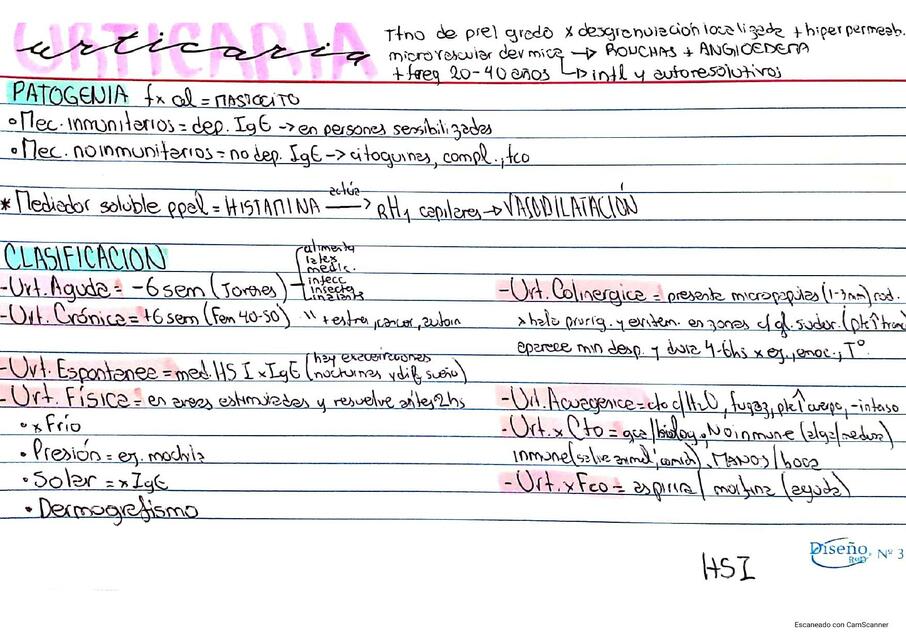 URTICARIA
urticaria
Ttno de piel grado x desgranulación localizada + hiperpermeab.
microvascular dermica → RONCHAS + ANGIOEDEMA
+ freq 20-40 años ↳ intl y autoresolutivos
PATOGENIA fx al = MASTOCITO
• Mec. inmunitarios = dep. IgE → en personas sensibilizadas
• Mec. no inmunitarios = no dep. IgE → citoquinas, compl., fco
* Mediador soluble ppal = HISTAMINA actúa → RH1 capilares → VASODILATACIÓN
CLASIFICACION
alimento
latex
medic.
infecc
insectos
- Urt. Aguda = -6 sem (Jovenes)
- Urt. Crónica = +6 sem (Fem 40-50) " + estres, cancer, autoin
- Urt. Espontanea = med. HS I x IgE (hay exacerbaciones
nocturnas y dif sueño)
- Urt. FÍSICA = en areas estimuladas y resuelve antes 2hs
• x Frío
• Presión = ej. mochila
• Solar = x IgE
• Dermografismo
- Urt. Colinergica = presenta micropapulas (1-3mm) rod.
x halo prurig. y eritem. en zonas c/ gl. sudor.
aparece min desp. y dura 4-6hs x ej., emoc., T°
- Urt. Acuagenica = cto c/ H2O, fugaz, ↑ cuerpo, - intenso
- Urt. x Cto = qca/biolog. No inmune (alga/medusa)
inmune (saliva animal, comida). MANOS/boca
- Urt. x Fco = aspirina/morfina (aguda)
HSI
Diseño
RyD
Nº 3
Escaneado con CamScanner